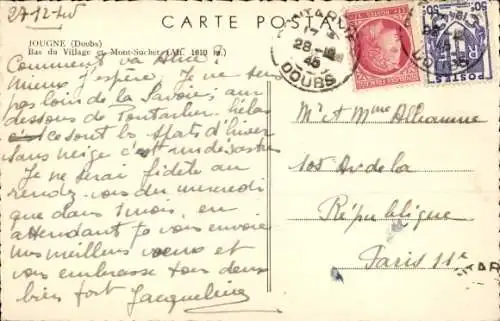 27-12-45
CARTE POSTALE
JOUGNE (Doubs)
Bas du Village et Mont-Suchet (Alt. 1610 m.)
Comment va Alice?
Mieux j'espère. Je ne suis
pas loin de la Savoie, au
dessous de Pontarlier. hélas
ce sont les sports d'hiver
sans neige c'est un désastre
Je ne serai fidèle au
rendez-vous du mercredi
que dans 1 mois, en
attendant je vous envoie
mes meilleurs vœux et
vous embrasse tous deux
bien fort Jacqueline
17
28-12
45
DOUBS
POSTES
Mr et Mme
105 Av de la
République
Paris 11e